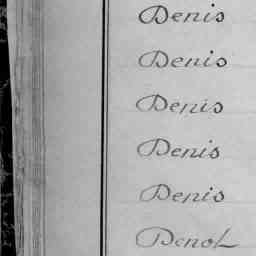 Denis
Denis
Denis
Denis
Denis
Denol